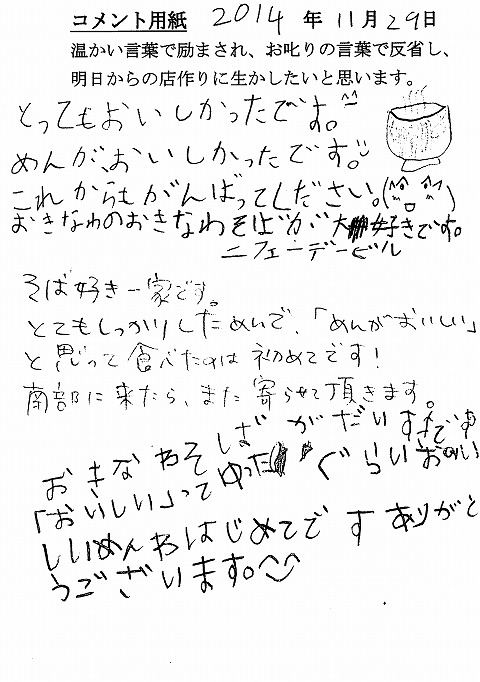 コメント用紙 2014年11月29日
温かい言葉で励まされ、お叱りの言葉で反省し、
明日からの店作りに生かしたいと思います。
とってもおいしかったです。^^
めんが、おいしかったです。
これからもがんばってください。
おきなわのおきなわそばが大好きです。
ニフェーデービル
そば好き一家です。
とてもしっかりしためんで、「めんがおいしい」
と思って食べたのは初めてです！
南部に来たら、また寄らせて頂きます。
おきなわそばがだいすきです
「おいしい」ってゆった ぐらいおい
しいめんわはじめてです ありがと
うございます。